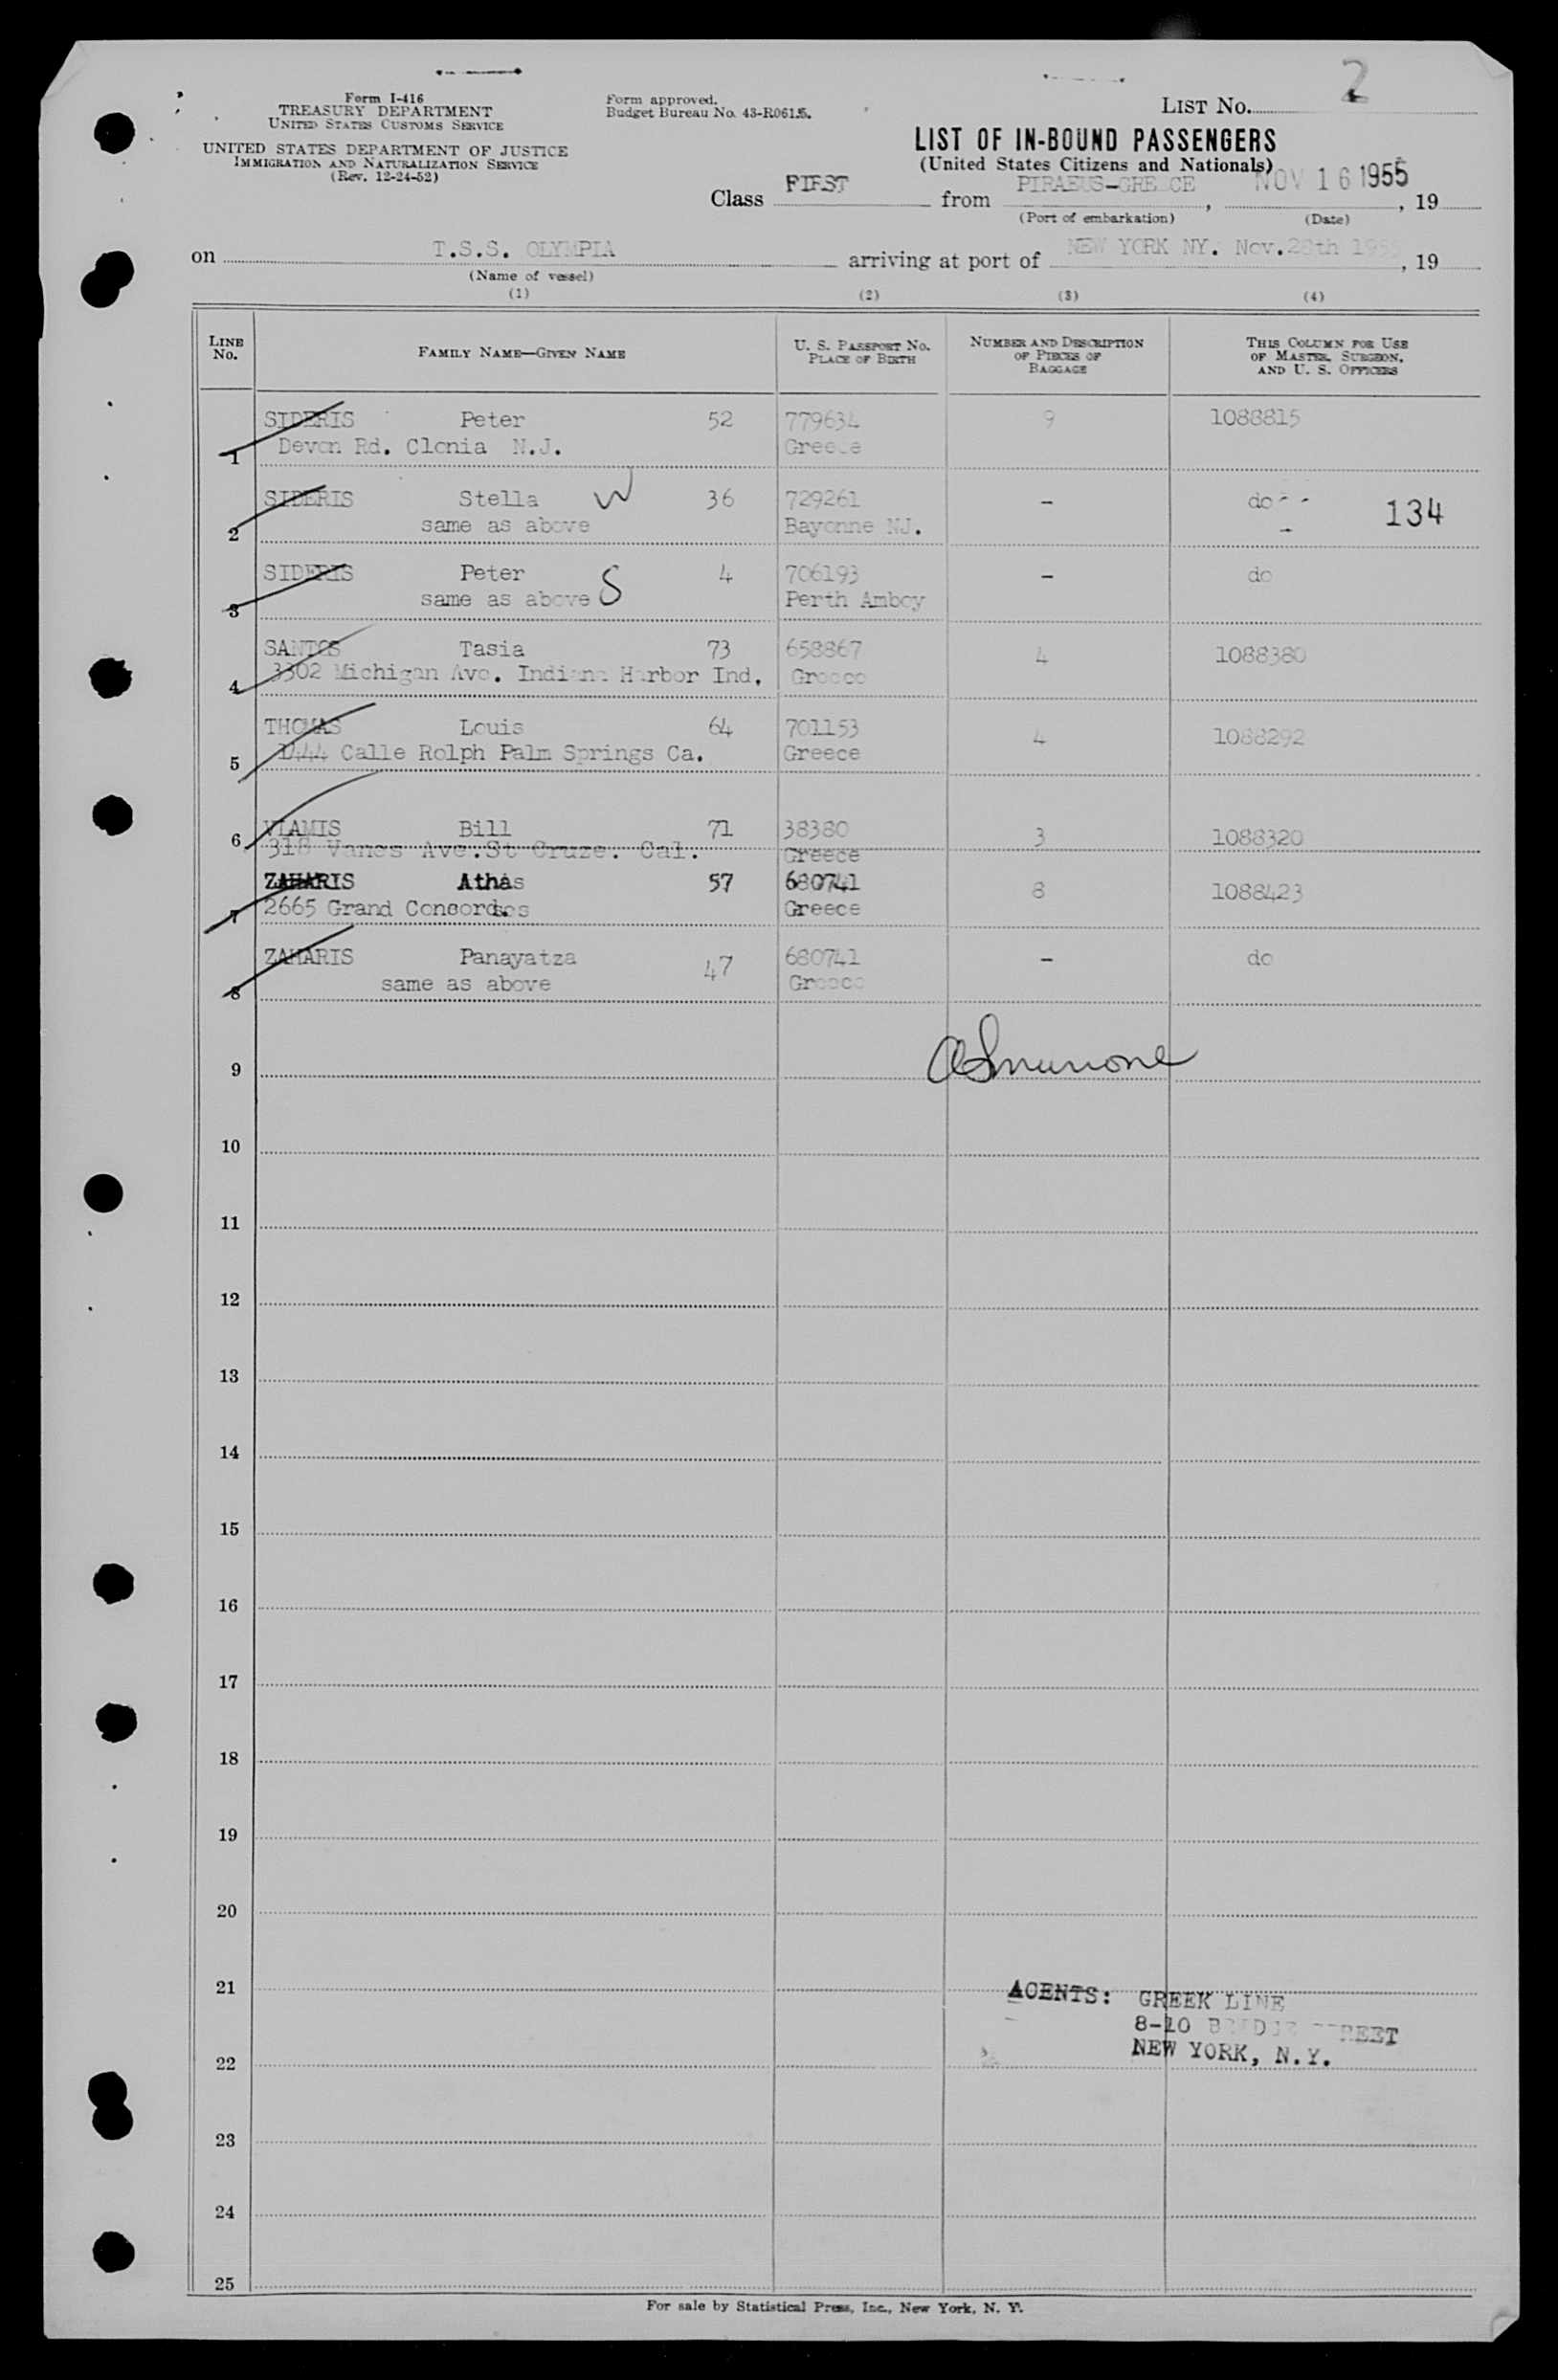 2
Form I-416
TREASURY DEPARTMENT
UNITED STATES CUSTOMS SERVICE
UNITED STATES DEPARTMENT OF JUSTICE
IMMIGRATION AND NATURALIZATION SERVICE
(Rev. 12-24-52)
Form approved.
Budget Bureau No. 43-R061.5.
LIST No.
LIST OF IN-BOUND PASSENGERS
(United States Citizens and Nationals)
Class FIRST from PIRAEUS-GREECE, NOV 16 1955, 19
(Port of embarkation) (Date)
on T.S.S. OLYMPIA arriving at port of NEW YORK NY. Nov. , 19
(Name of vessel)
(1) (2) (3) (4)
LINE No. FAMILY NAME—GIVEN NAME U. S. PASSPORT NO. PLACE OF BIRTH NUMBER AND DESCRIPTION OF PIECES OF BAGGAGE THIS COLUMN FOR USE OF MASTER, SURGEON, AND U. S. OFFICERS
SIDERIS Peter 52 779634 9 1088815
1 Devon Rd. Clonia N.J. Greece
SIDERIS Stella W 36 729261 - do - - 134
2 same as above Bayonne NJ. -
SIDERIS Peter 4 706193 - do
3 same as above S Perth Amboy
SANTOS Tasia 73 658867 4 1088380
4 3302 Michigan Ave. Indiana Harbor Ind. Greece
THOMAS Louis 64 701153 4 1088292
5 1444 Calle Rolph Palm Springs Ca. Greece
6 VLAMIS Bill 71 38380 3 1088320
318 Vanes Ave. St Cruze. Cal. Greece
ZAHARIS Athas 57 680741 8 1088423
7 2665 Grand Greece
ZAHARIS Panayatza 47 680741 - do
8 same as above Greece
9
10
11
12
13
14
15
16
17
18
19
20
21 AGENTS: GREEK LINE
8-10 BRIDGE STREET
22 NEW YORK, N.Y.
23
24
25
For sale by Statistical Press, Inc., New York, N. Y.